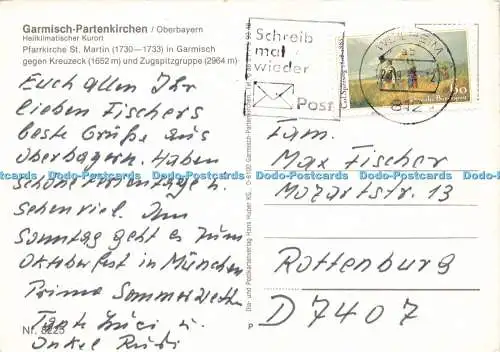 Garmisch-Partenkirchen / Oberbayern
Heilklimatischer Kurort
Pfarrkirche St. Martin (1730—1733) in Garmisch
gegen Kreuzeck (1652 m) und Zugspitzgruppe (2964 m)
Euch allen Ihr
lieben Fischers
beste Grüße aus
Oberbayern. Haben
schöne Ferientage u.
sehen viel. Am
Sonntag geht es zum
Oktoberfest in München
Prima Sommerwetter
Tante Luci u.
Onkel Rudi
Nr. 8225
Schreib
mal
wieder
Post
WEILHEIM
812
Carl Spitzweg
60
Deutsche Bundespost
Fam.
Max Fischer
Mozartstr. 13
Rottenburg
D 7407
Dia- und Postkartenverlag Hans Huber KG, D-8100 Garmisch-Partenkirchen
P
Dodo-Postcards Dodo-Postcards Dodo-Postcards Dodo-Postcards Dodo-Postcards
Dodo-Postcards Dodo-Postcards Dodo-Postcards Dodo-Postcards Dodo-Postcards